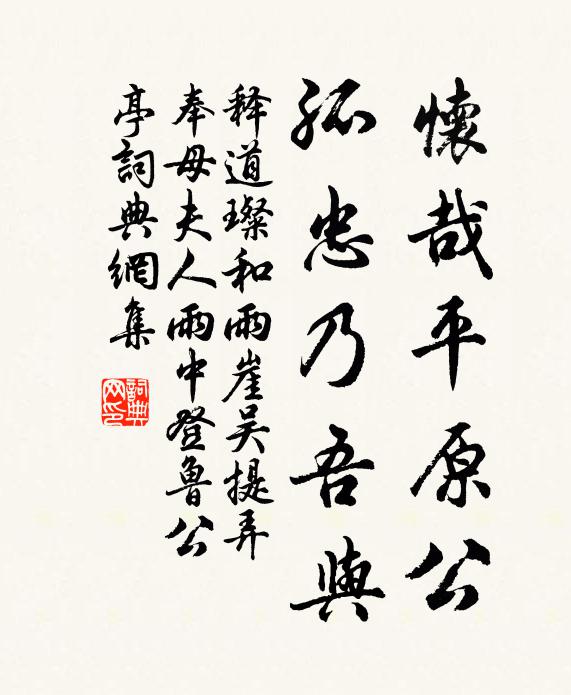 懷哉平原公
孤忠乃吾與
释道璨和雨崖吴提弄
奉母夫人雨中登魯公
亭詞典網集
詞典
网印